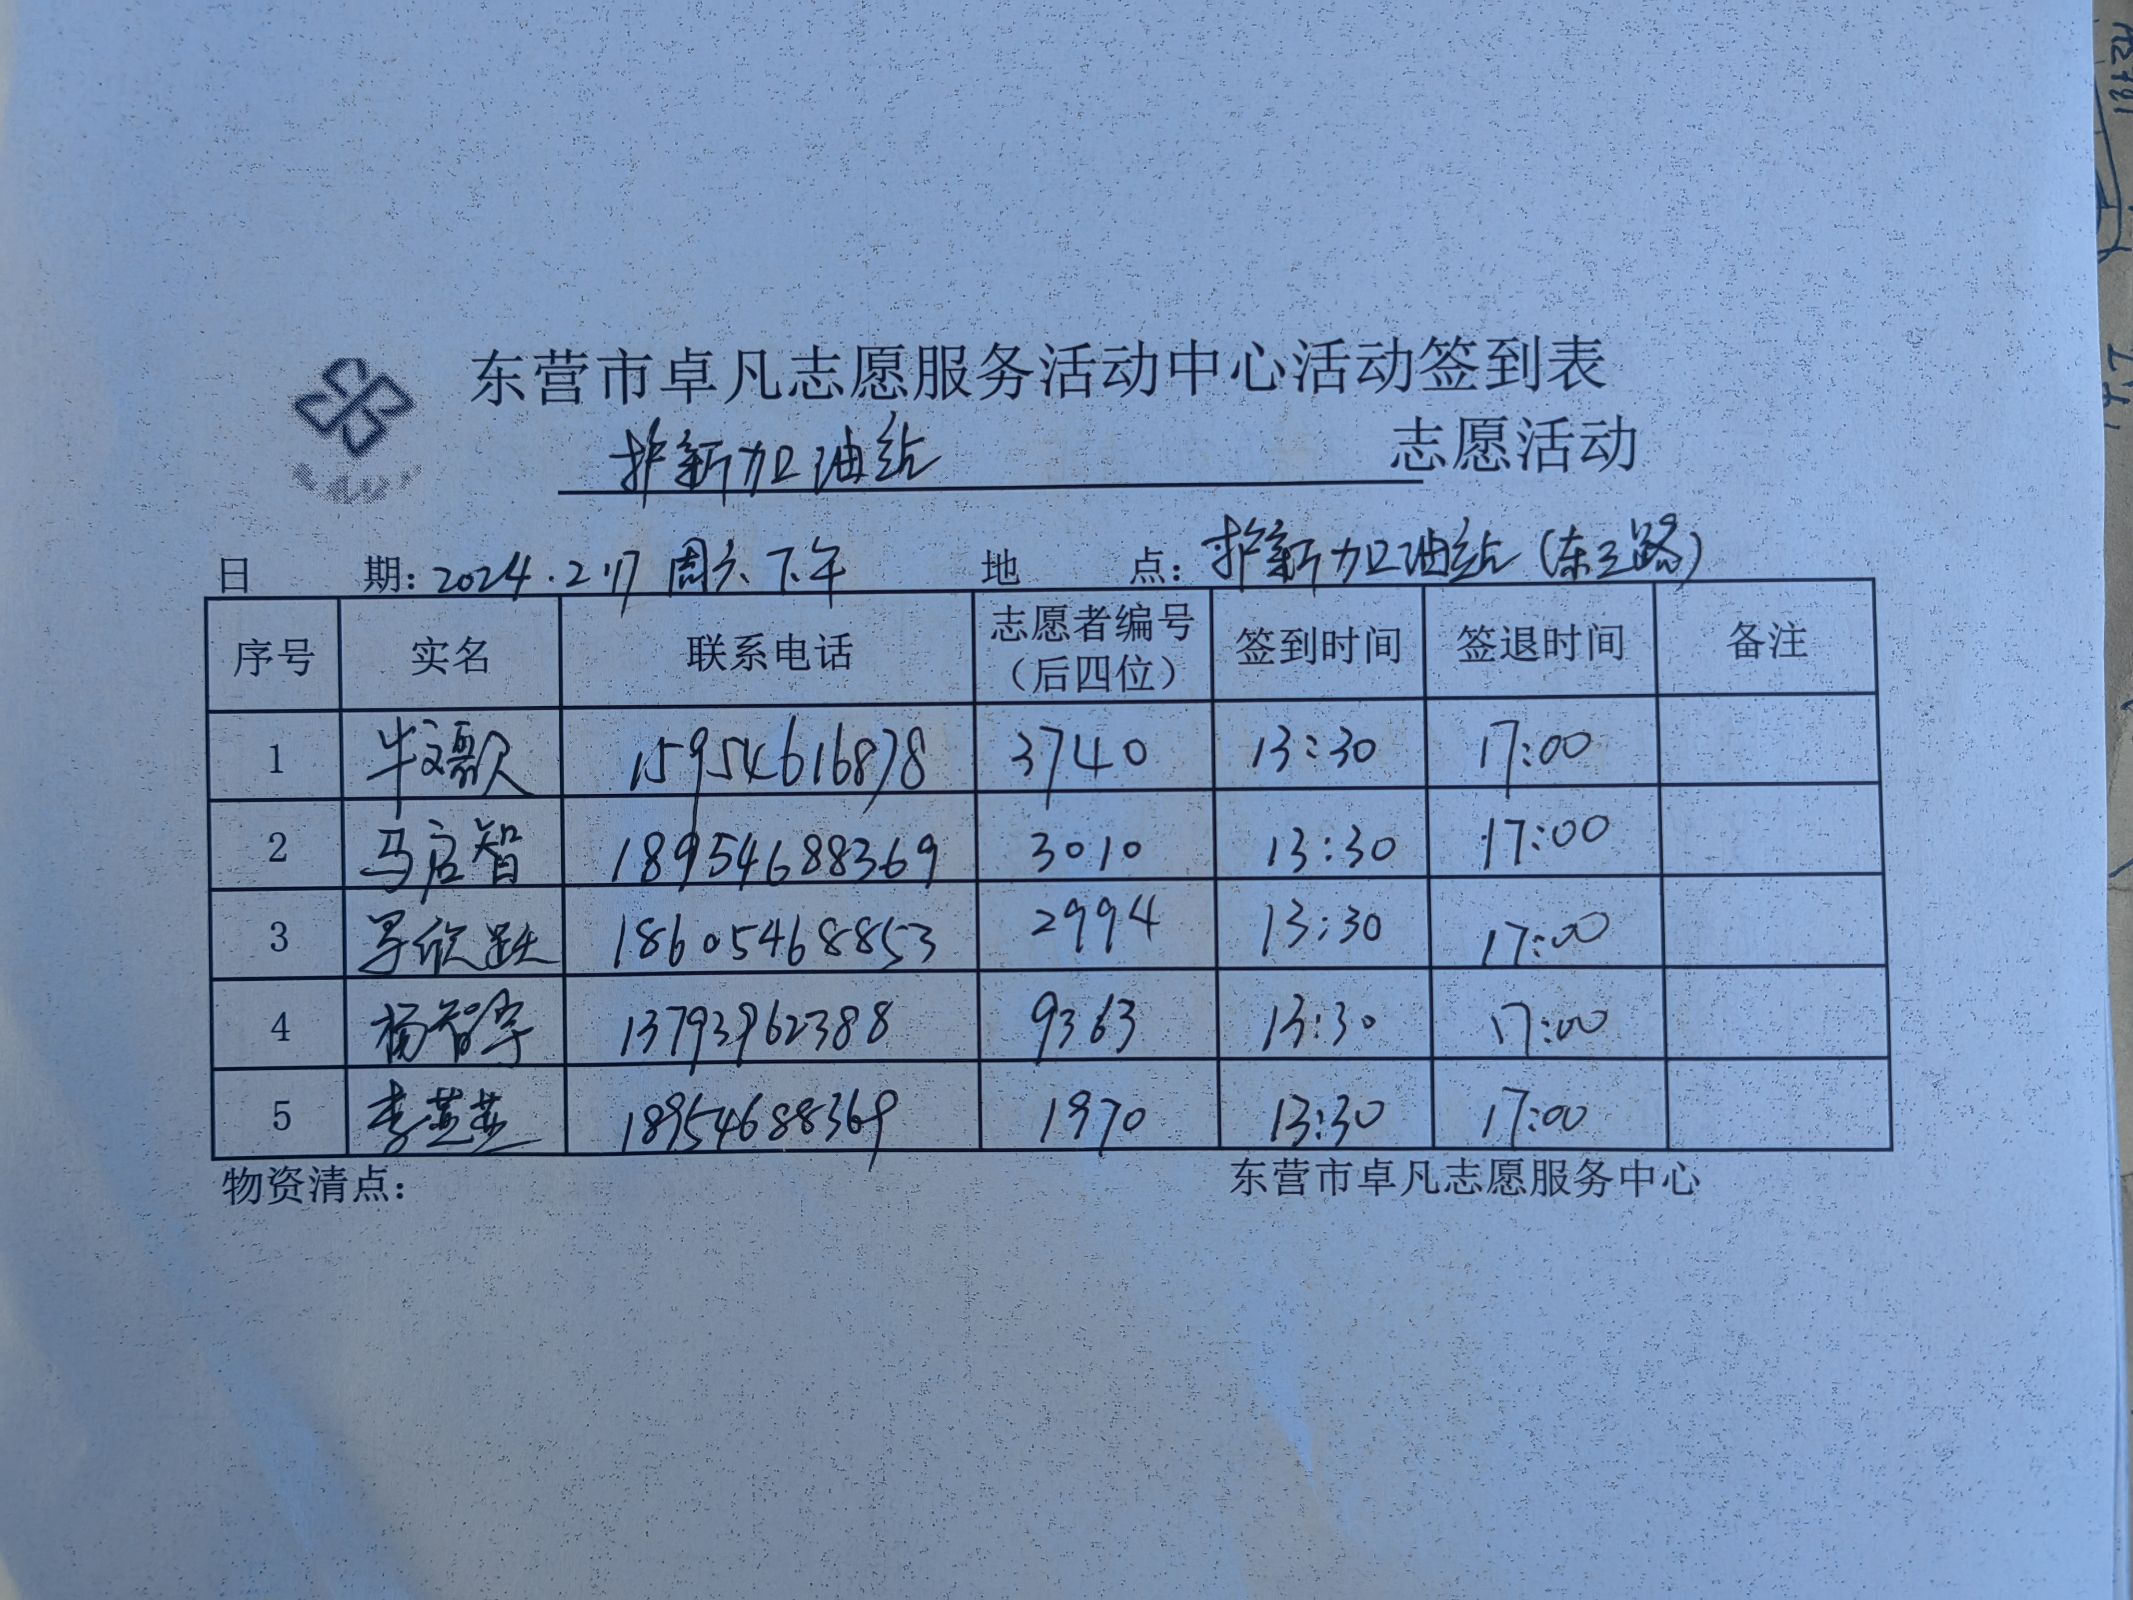 东营市卓凡志愿服务活动中心活动签到表
护新加油站 志愿活动
日 期：2024.2.17 周六、下午 地 点：护新加油站（东三路）
序号 实名 联系电话 志愿者编号（后四位） 签到时间 签退时间 备注
1 牛文歌 15954616878 3740 13:30 17:00
2 马启智 18954688369 3010 13:30 17:00
3 欣跃 18605468853 2994 13:30 17:00
4 杨智宇 13793962388 9363 13:30 17:00
5 李 18954688369 1970 13:30 17:00
物资清点： 东营市卓凡志愿服务中心